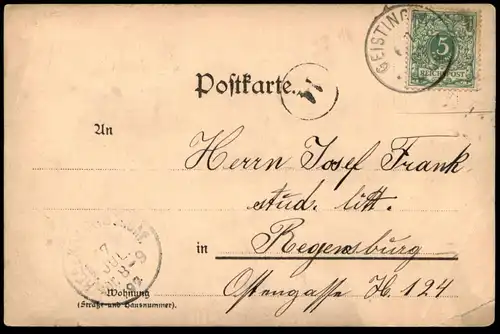 GEISTING
5
REICHSPOST
Postkarte.
An
Herrn Josef Frank
stud. litt.
in Regensburg
Ostengasse H. 124
7
JUL
8-9
Wohnung
(Straße und Hausnummer).